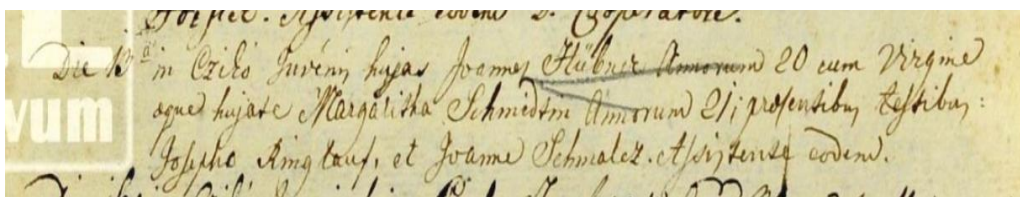 Assistente eodem D. Cooperatore.
Die 13a in Cziko Juvenis hujas Joannes Hübner Annorum 20 cum Virgine
vum
aeque hujate Margaritha Schmidtin Annorum 21; praesentibus testibus:
Josepho Ringlauf, et Joanne Schmalcz. Assistente eodem.